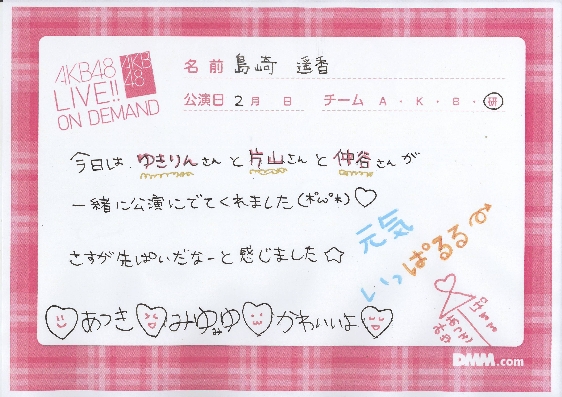 AKB48
LIVE!!
ON DEMAND
AKB
48
名前 島崎 遥香
公演日 2月 日 チーム A・K・B・研
今日は ゆきりんさん と 片山さん と 仲谷さん が
一緒に公演にでてくれました(*'ω'*)♡
さすが先ぱいだなーと感じました☆
元気
いっぱぱるる
あつき みゆみゆ かわいいよ
DMM.com